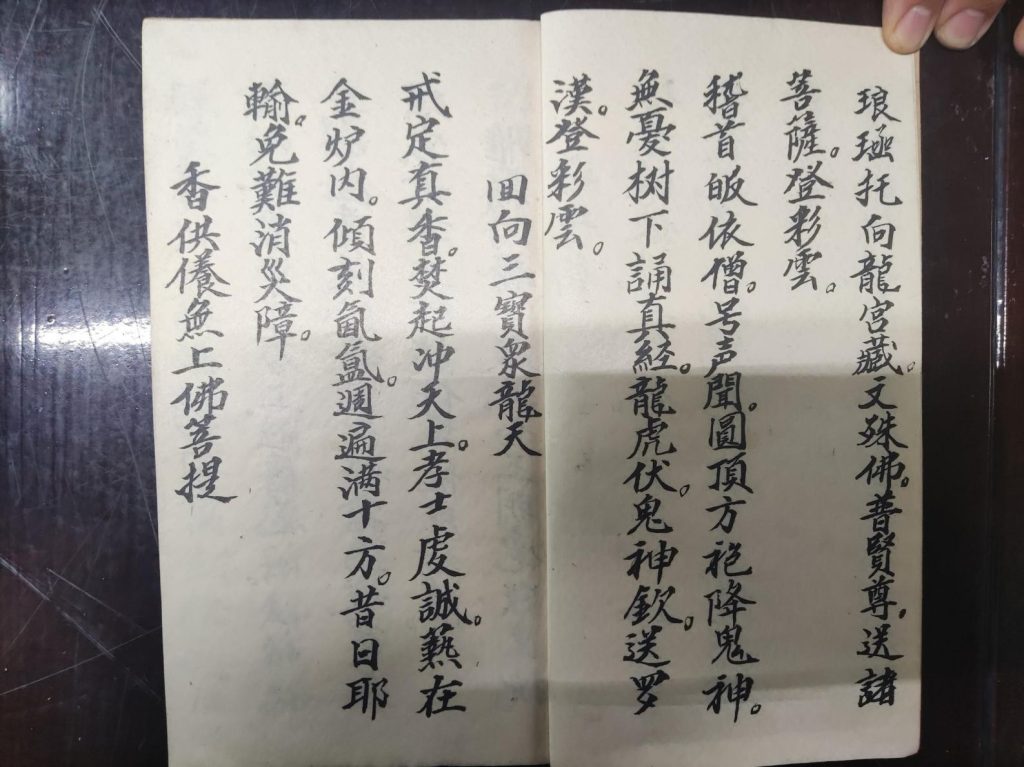 琅函托向龍宮藏。文殊佛。普賢尊。送諸
菩薩。登彩雲。
稽首皈依僧。号声聞。圓頂方袍降鬼神。
無憂树下誦真經。龍虎伏。鬼神欽。送罗
漢。登彩雲。
回向三寳衆龍天
戒定真香。焚起冲天上。孝士虔誠。爇在
金炉内。傾刻氤氳。週遍满十方。昔日耶
輸。免難消災障。
香供養無上佛菩提